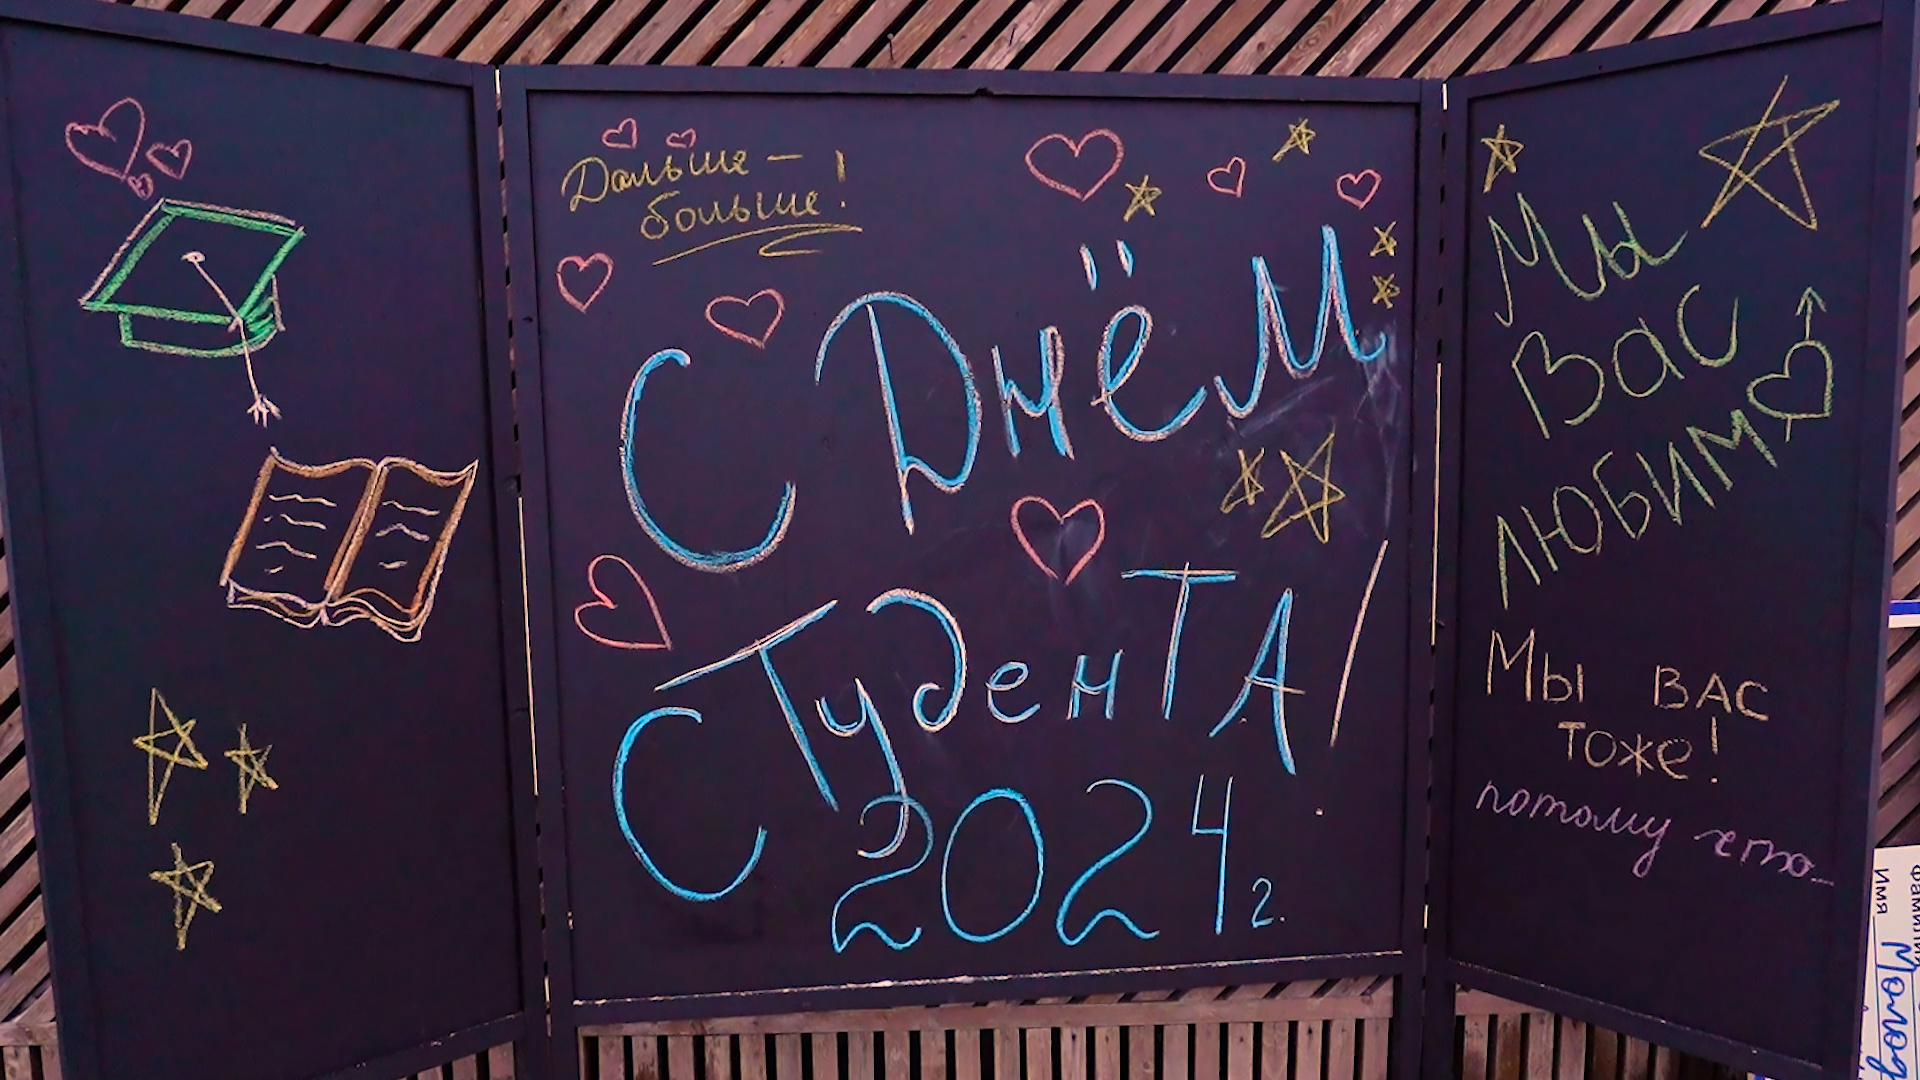 Дальше —
больше!
С Днём
СТуденТА!
2024 г.
Мы
Вас
ЛЮБИМ
Мы ВАС
тоже!
потому что...
Имя
Фамилия